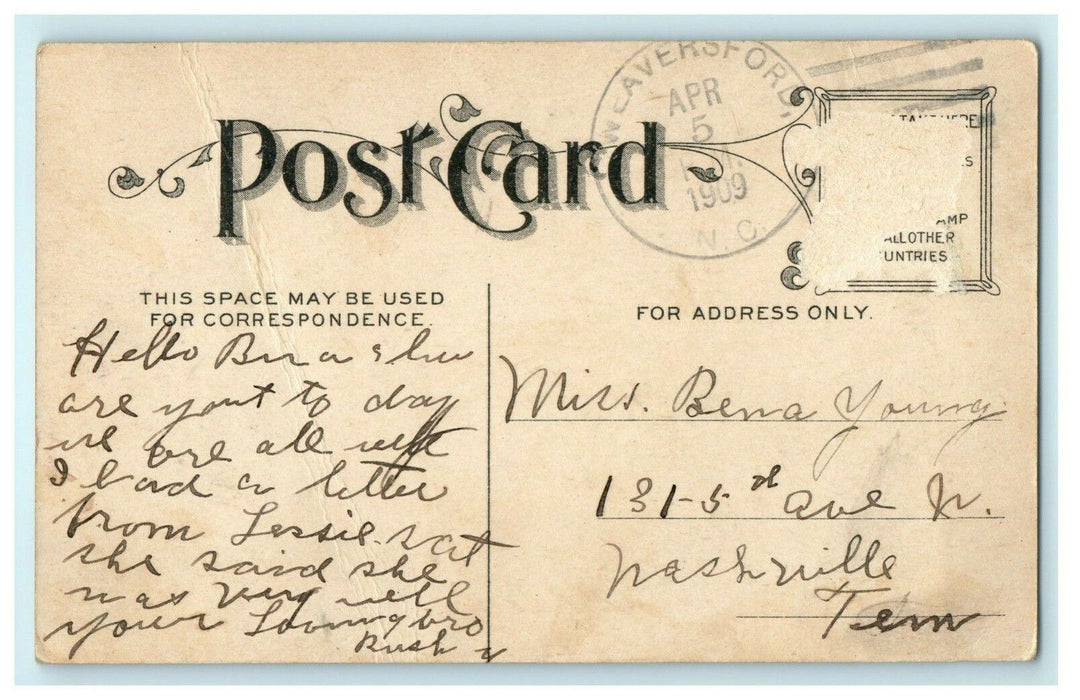 Post Card
WEAVERSFORD,
APR
5
1909
N. C.
HERE
S
AMP
ALL OTHER
UNTRIES
THIS SPACE MAY BE USED
FOR CORRESPONDENCE.
FOR ADDRESS ONLY.
Hello Bena how
are you to day
we are all well
I had a letter
from Lessie. Sat
she said she
was very well
your Loving bro
Rush
Miss. Bena Young
131-5 ave N.
Nashville
Tenn